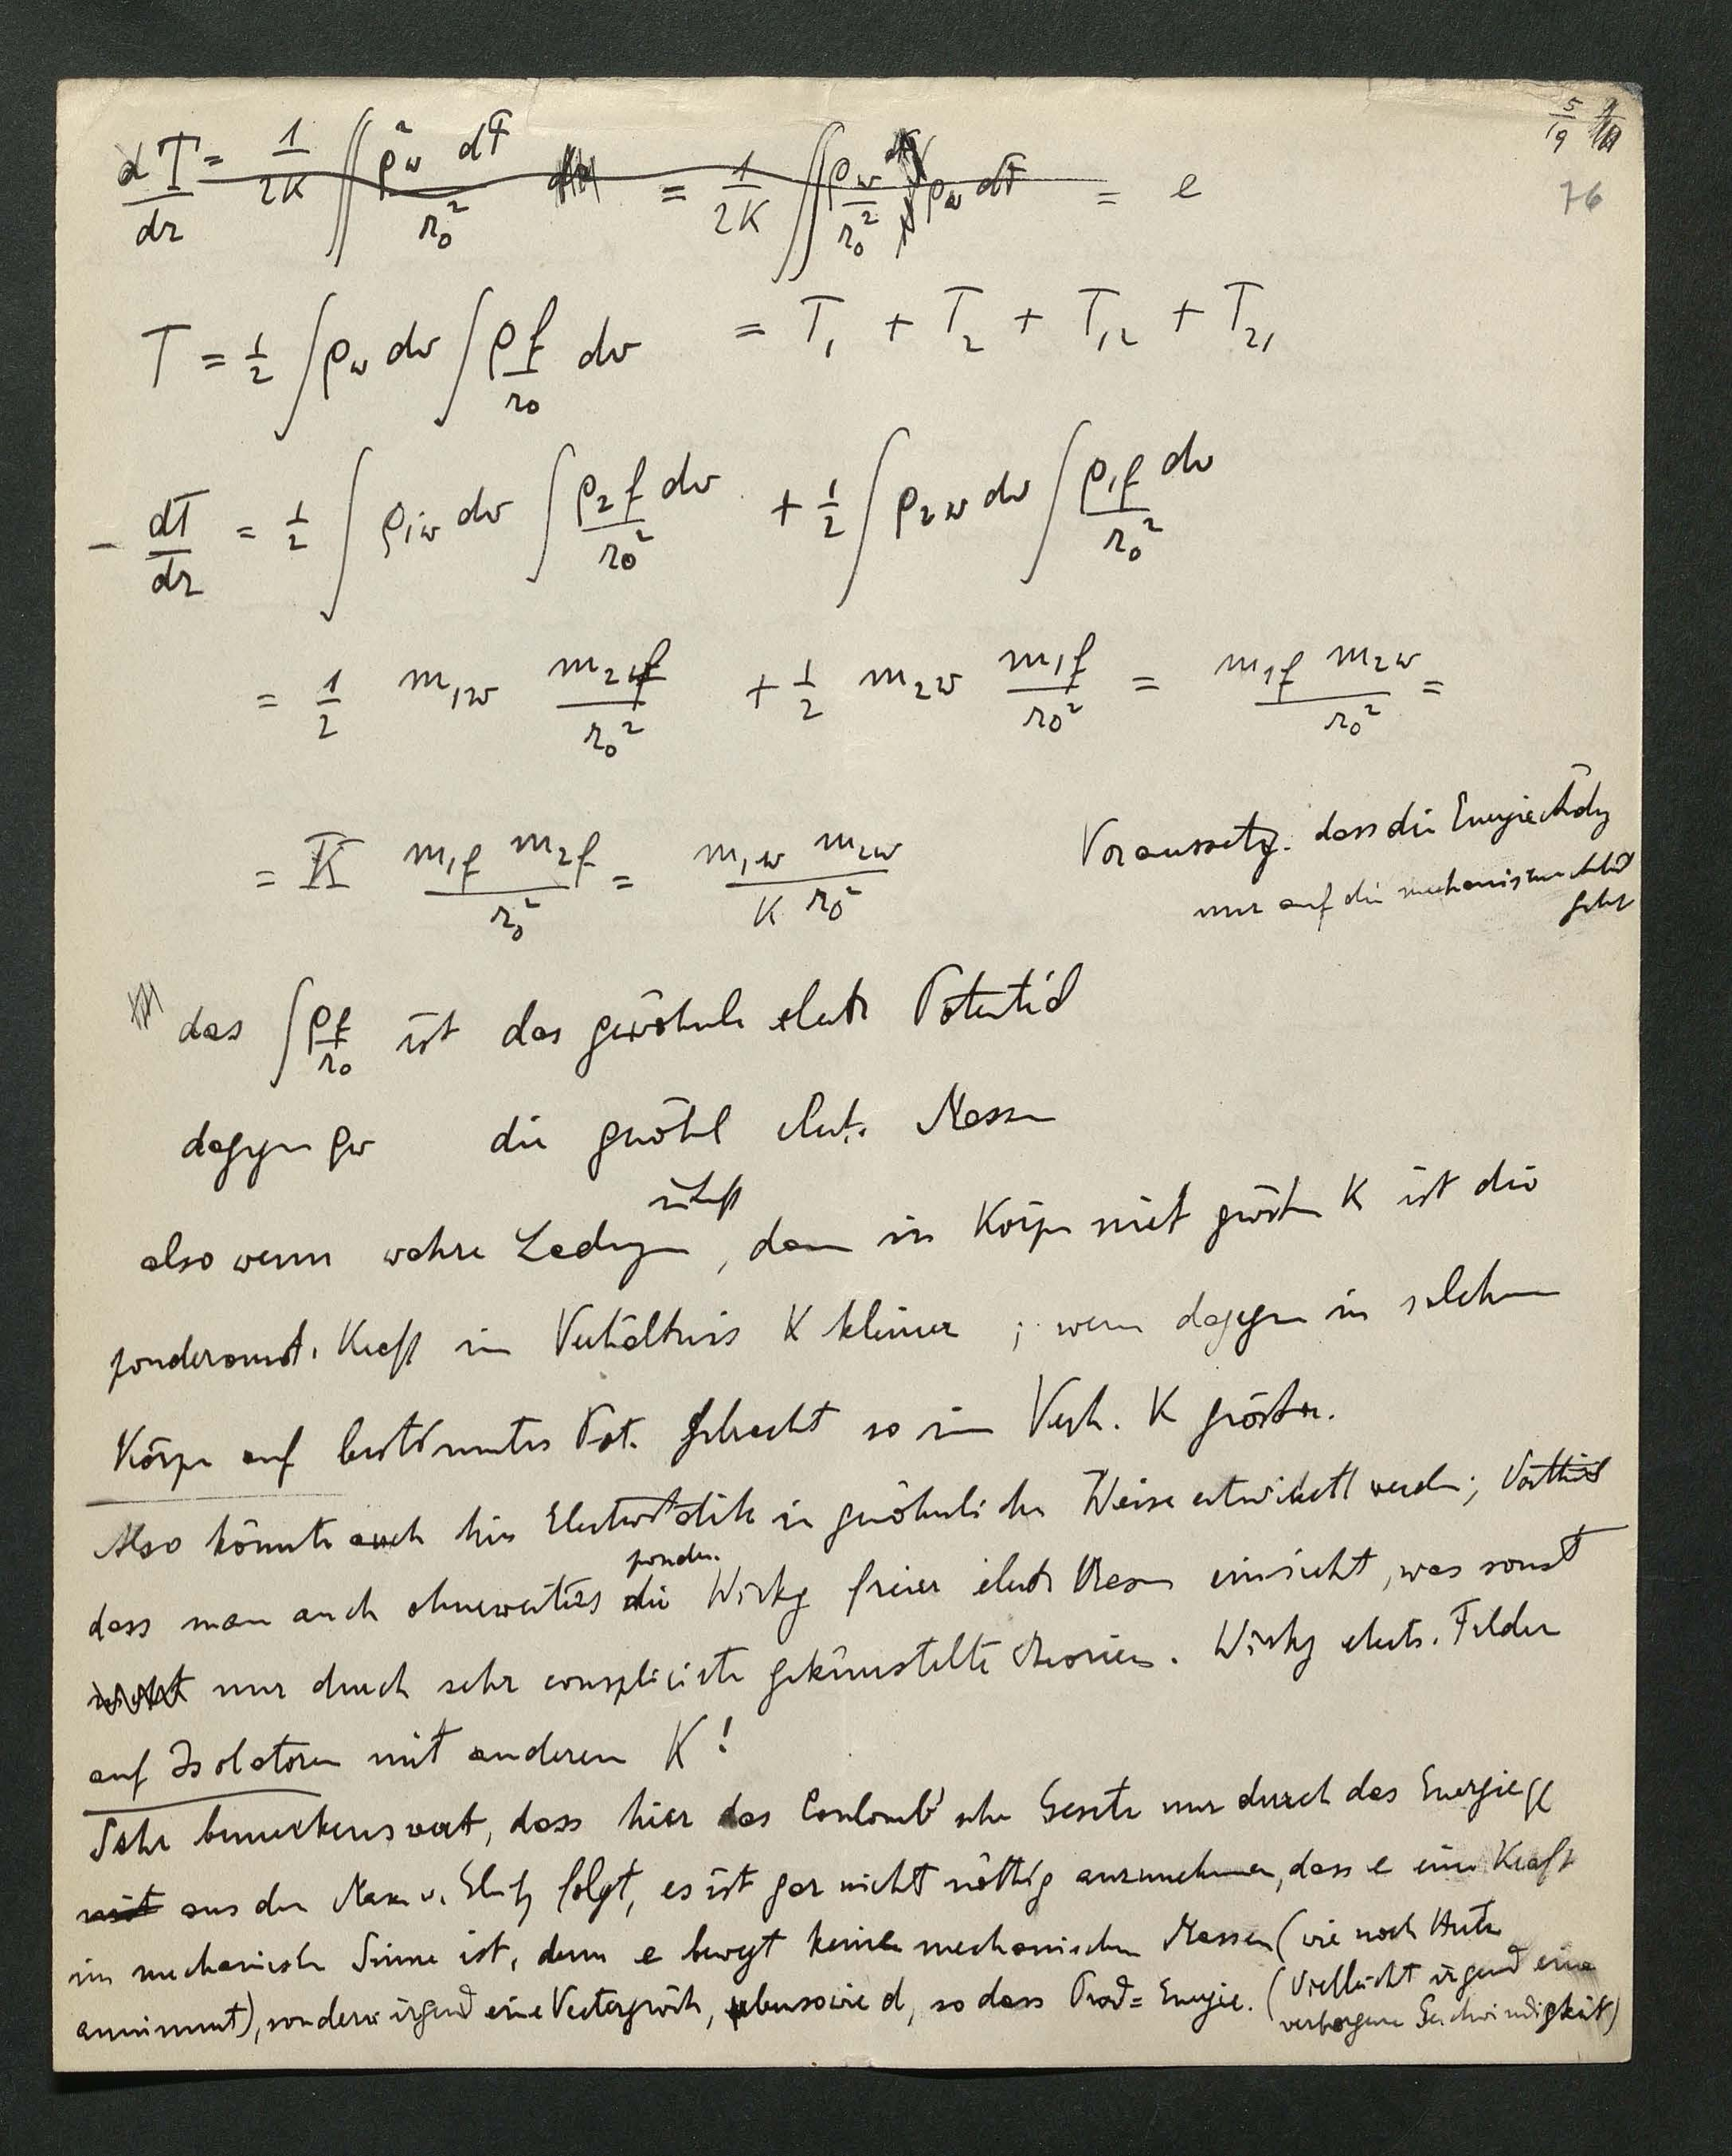 5/19
76
dT/dr = 1/2K ∬ ρw² dτ / r0² = 1/2K ∬ ρw / r0² ρw dτ = e
T = 1/2 ∫ρw dv ∫ρf/r0 dv = T1 + T2 + T12 + T21
- dT/dr = 1/2 ∫ρ1w dv ∫ρ2f dv/r0² + 1/2 ∫ρ2w dv ∫ρ1f dv/r0²
= 1/2 m1w m2f/r0² + 1/2 m2w m1f/r0² = m1f m2w/r0² =
= K m1f m2f/r0² = m1w m2w/K r0²
Voraussetzg. dass die Energieändg
nur auf die mechanische
geht
das ∫ρf/r0 ist das gewöhnl electr Potential
dagegen ρw die gewöhl elect. Massen
also wenn wahre Ladungen, dann in Körper mit größern K ist die
ponderomot. Kraft im Verhältnis K kleiner; wenn dagegen in solchem
Körper auf bestimmtes Pot. gebracht so im Verh. K größer.
Also könnte auch hier Electrostatik in gewöhnlicher Weise entwickelt werden; Vortheil
dass man auch ohneweiters die ponder. Wirkg freier electr Massen einsieht, was sonst
nicht nur durch sehr complicirte gekünstelte Theorien. Wirkg electr. Felder
auf Isolatoren mit anderen K!
Sehr bemerkenswert, dass hier das Coulomb'sche Gesetz nur durch das Energie
mit aus den Max folgt, es ist gar nicht nöthig anzunehmen, dass e eine Kraft
im mechanischen Sinne ist, denn e bewegt keine mechanischen Massen (wie noch
annimmt), sondern irgend eine Vectorgröße, ebensowie d, so dass Prod = Energie. (Vielleicht irgend eine
verborgene Geschwindigkeit)